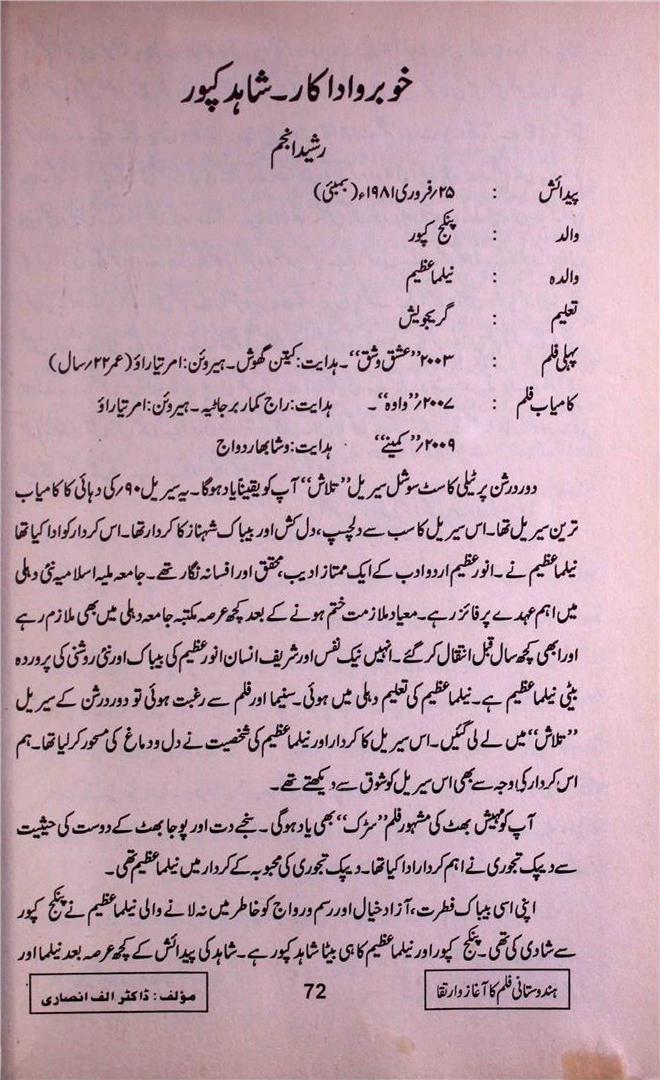 خوبرو اداکار۔ شاہد کپور
رشید انجم
پیدائش : ۲۵؍فروری ۱۹۸۱ء (بمبئی)
والد : پنکج کپور
والدہ : نیلما عظیم
تعلیم : گریجویشن
پہلی فلم : ۲۰۰۳ ’’عشق وشق‘‘۔ ہدایت: کیتن گھوش۔ ہیروئن: امرتیا راؤ (عمر ۲۲؍سال)
کامیاب فلم : ۲۰۰۷؍ ’’واہ‘‘۔ ہدایت: راج کمار برجاتیہ۔ ہیروئن: امرتیا راؤ
۲۰۰۹؍ ’’کمینے‘‘ ہدایت: وشا بھاردواج
دوردرشن پر ٹیلی کاسٹ سوشل سیریل ’’تلاش‘‘ آپ کو یقیناً یاد ہوگا۔ یہ سیریل ۹۰؍ کی دہائی کا کامیاب
ترین سیریل تھا۔ اس سیریل کا سب سے دلچسپ، دل کش اور بیباک شہناز کا کردار تھا۔ اس کردار کو ادا کیا تھا
نیلما عظیم نے۔ انور عظیم اردو ادب کے ایک ممتاز ادیب، محقق اور افسانہ نگار تھے۔ جامعہ ملیہ اسلامیہ نئی دہلی
میں اہم عہدے پر فائز رہے۔ معیاد ملازمت ختم ہونے کے بعد کچھ عرصہ مکتبہ جامعہ دہلی میں بھی ملازم رہے
اور ابھی کچھ سال قبل انتقال کر گئے۔ انہیں نیک نفس اور شریف انسان انور عظیم کی بیباک اور نئی روشنی کی پروردہ
بیٹی نیلما عظیم ہے۔ نیلما عظیم کی تعلیم دہلی میں ہوئی۔ سنیما اور فلم سے رغبت ہوئی تو دوردرشن کے سیریل
’’تلاش‘‘ میں لے لی گئیں۔ اس سیریل کا کردار اور نیلما عظیم کی شخصیت نے دل و دماغ کی مسحور کر لیا تھا۔ ہم
اس کردار کی وجہ سے بھی اس سیریل کو شوق سے دیکھتے تھے۔
آپ کو مہیش بھٹ کی مشہور فلم ’’سڑک‘‘ بھی یاد ہوگی۔ سنجے دت اور پوجا بھٹ کے دوست کی حیثیت
سے دیپک تجوری نے اہم کردار ادا کیا تھا۔ دیپک تجوری کی محبوبہ کے کردار میں نیلما عظیم تھی۔
اپنی اسی بیباک فطرت، آزاد خیال اور رسم و رواج کو خاطر میں نہ لانے والی نیلما عظیم نے پنکج کپور
سے شادی کی تھی۔ پنکج کپور اور نیلما عظیم کا ہی بیٹا شاہد کپور ہے۔ شاہد کی پیدائش کے کچھ عرصہ بعد نیلما اور
ہندوستانی فلم کا آغاز و ارتقا
72
مؤلف: ڈاکٹر الف انصاری